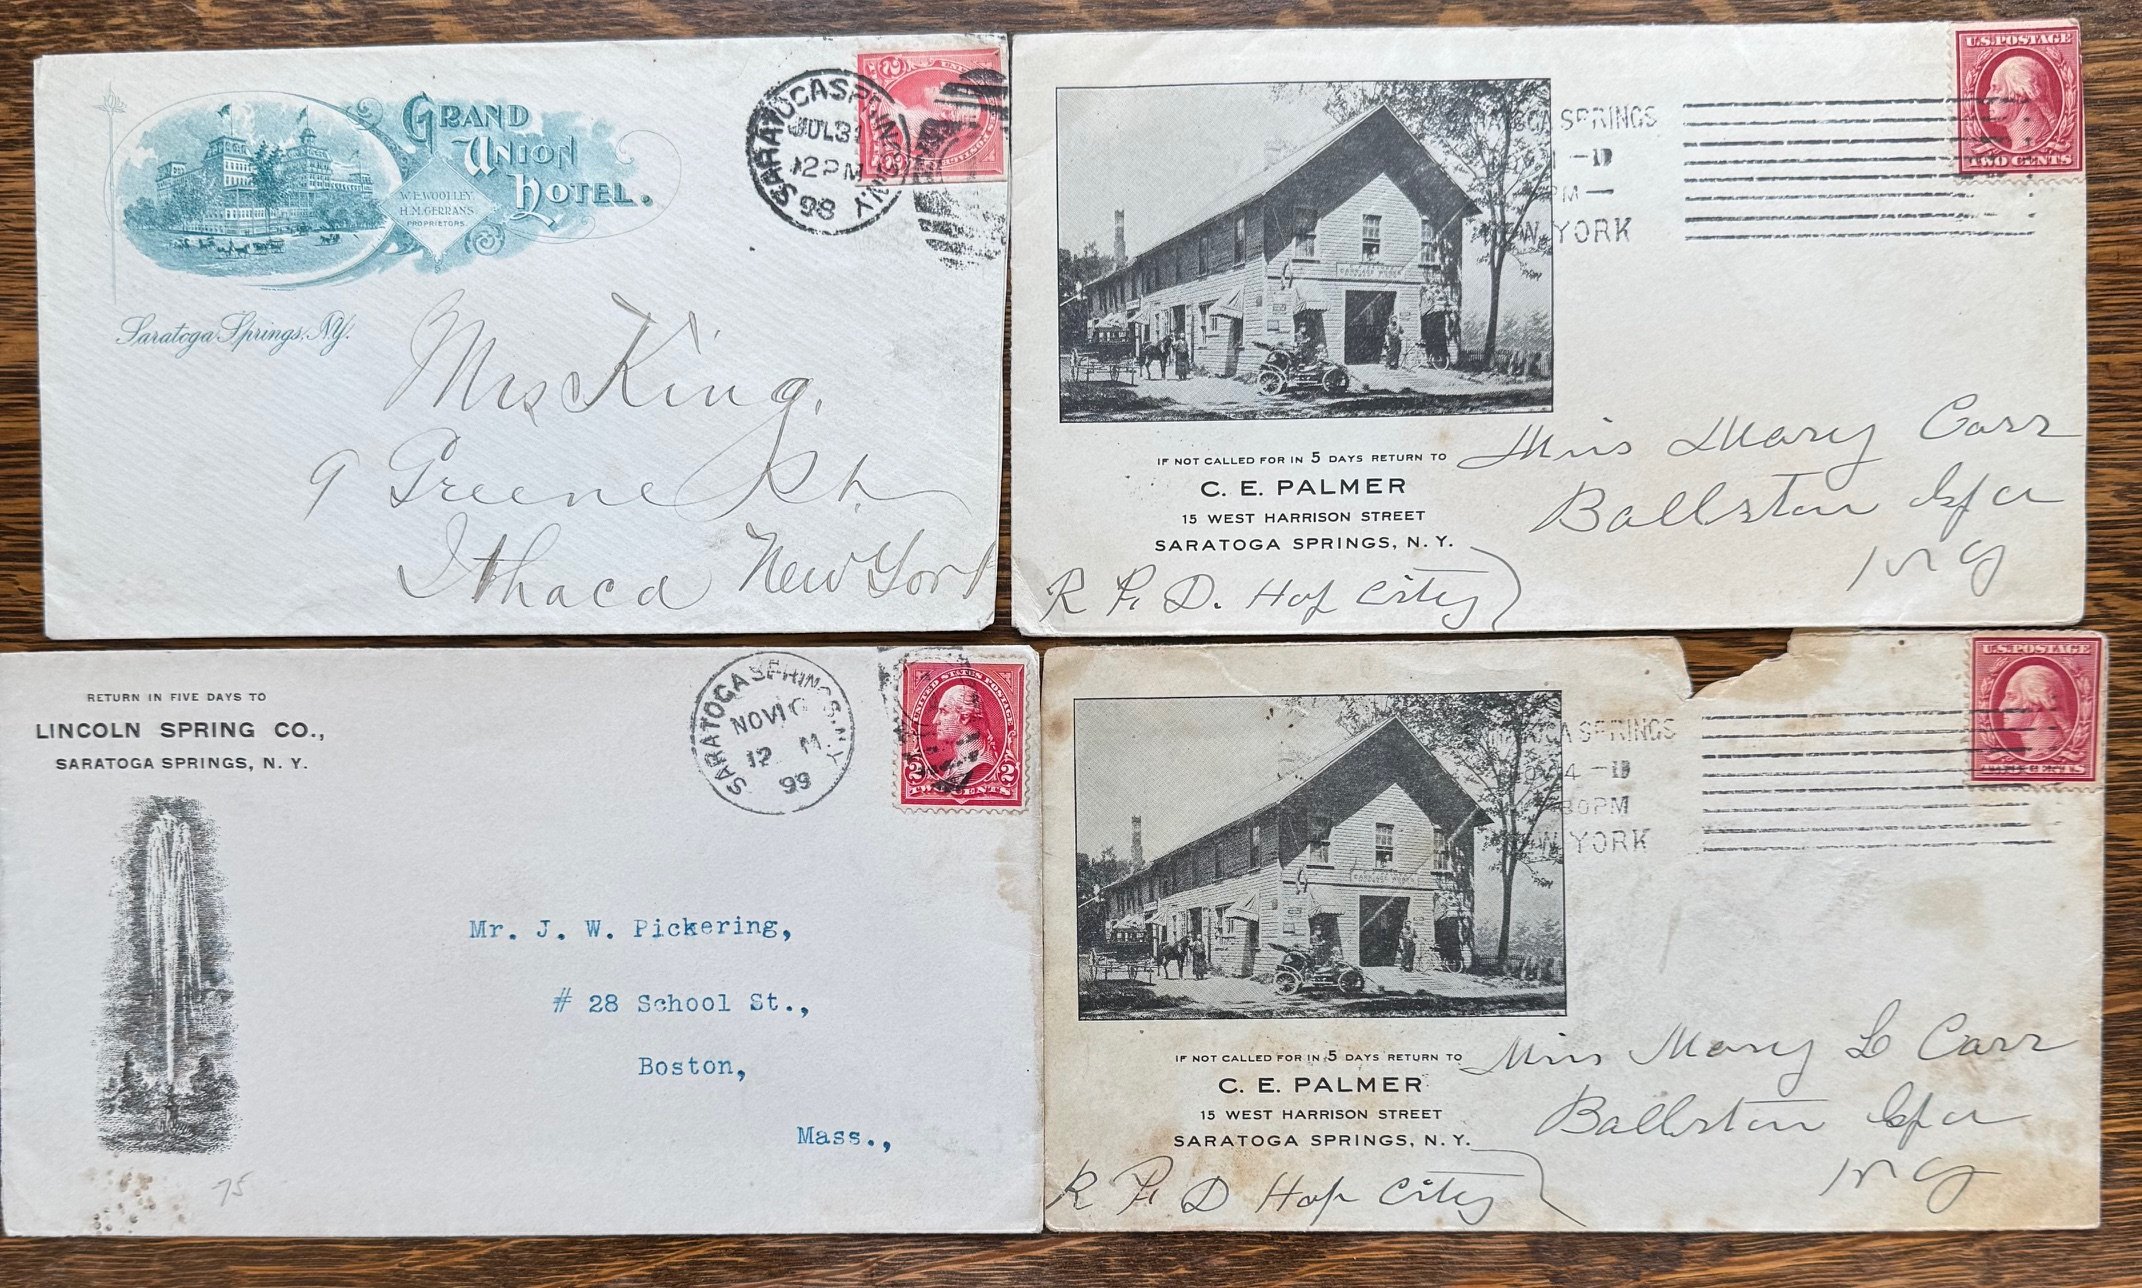 GRAND
UNION
HOTEL.
W.E. WOOLLEY.
H.M. GERRANS
PROPRIETORS.
Saratoga Springs, N.Y.
SARATOGA SPRINGS N.Y.
JUL 31
12 PM
98
Mrs King,
9 Greene St.
Ithaca New York
SPRINGS
YORK
U.S. POSTAGE
TWO CENTS
IF NOT CALLED FOR IN 5 DAYS RETURN TO
C. E. PALMER
15 WEST HARRISON STREET
SARATOGA SPRINGS, N. Y.
Miss Mary Carr
Ballston Spa
N Y
R F. D. Hop City
RETURN IN FIVE DAYS TO
LINCOLN SPRING CO.,
SARATOGA SPRINGS, N. Y.
SARATOGA SPRINGS, N.Y.
NOV
12 M
99
UNITED STATES POSTAGE
2 2
TWO CENTS
Mr. J. W. Pickering,
# 28 School St.,
Boston,
Mass.,
75
SPRINGS
30PM
YORK
U.S. POSTAGE
CENTS
IF NOT CALLED FOR IN 5 DAYS RETURN TO
C. E. PALMER
15 WEST HARRISON STREET
SARATOGA SPRINGS, N. Y.
Miss Mary L Carr
Ballston Spa
N Y
R F. D Hop City